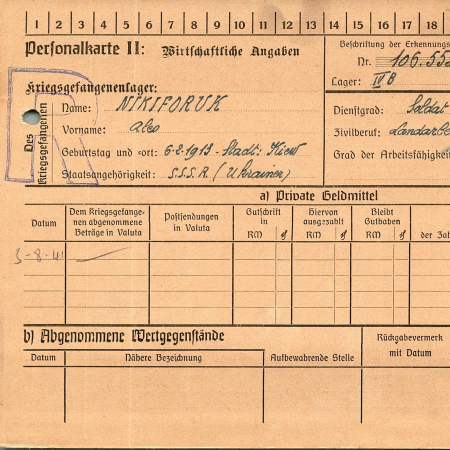 1 2 3 4 5 6 7 8 9 10 11 12 13 14 15 16 17 18
Personalkarte II: Wirtschaftliche Angaben
Beschriftung der Erkennungs
Nr. 106.55
Lager: IV B
Kriegsgefangenenlager:
Des Kriegsgefangenen
Name: NIKIFORUK
Vorname: Alex
Geburtstag und -ort: 6-2-1913 - Stadt: Kiew
Staatsangehörigkeit: S.S.S.R. (Ukrainer)
Dienstgrad: Soldat
Zivilberuf: Landarbe
Grad der Arbeitsfähigkei
a) Private Geldmittel
Datum
Dem Kriegsgefange-
nen abgenommene
Beträge in Valuta
Postsendungen
in Valuta
Gutschrift
in
RM
Hiervon
ausgezahlt
RM
Bleibt
Guthaben
RM
der Zah
3-8-41
b) Abgenommene Wertgegenstände
Datum
Nähere Bezeichnung
Aufbewahrende Stelle
Rückgabevermerk
mit Datum